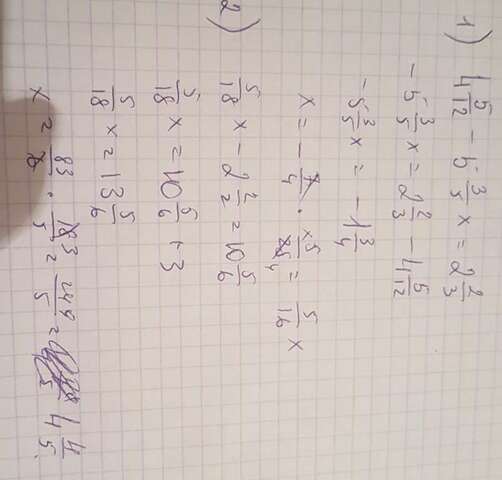 1) 4 5/12 - 5 3/5 x = 2 2/3
- 5 3/5 x = 2 2/3 - 4 5/12
- 5 3/5 x = - 1 3/4
x = - 7/4 · 5/28 = 5/16 x
2) 5/18 x - 2 2/2 = 10 5/6
5/18 x = 10 5/6 + 3
5/18 x = 13 5/6
x = 83/6 · 18 3/5 = 249/5 = 4 4/5